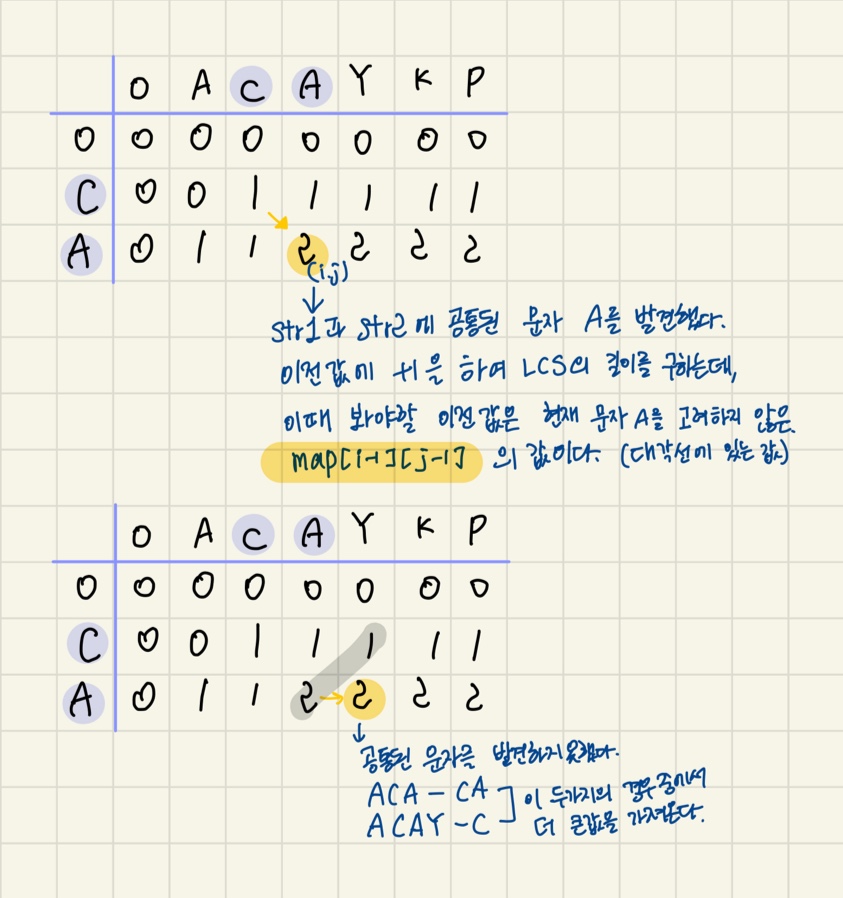 0 A C A Y K P
0 0 0 0 0 0 0 0
C 0 0 1 1 1 1 1
A 0 1 1 2 2 2 2
(i,j)
↓
str1과 str2에 공통된 문자 A를 발견했다.
이전값에 +1을 하여 LCS의 길이를 구하는데,
이때 봐야할 이전값은 현재 문자 A를 고려하지 않은
map[i-1][j-1] 의 값이다. (대각선에 있는 값)
0 A C A Y K P
0 0 0 0 0 0 0 0
C 0 0 1 1 1 1 1
A 0 1 1 2 → 2 2 2
↓
공통된 문자를 발견하지 못했다.
ACA - CA ] 이 두가지의 경우 중에서
ACAY - C ] 더 큰값을 가져온다.